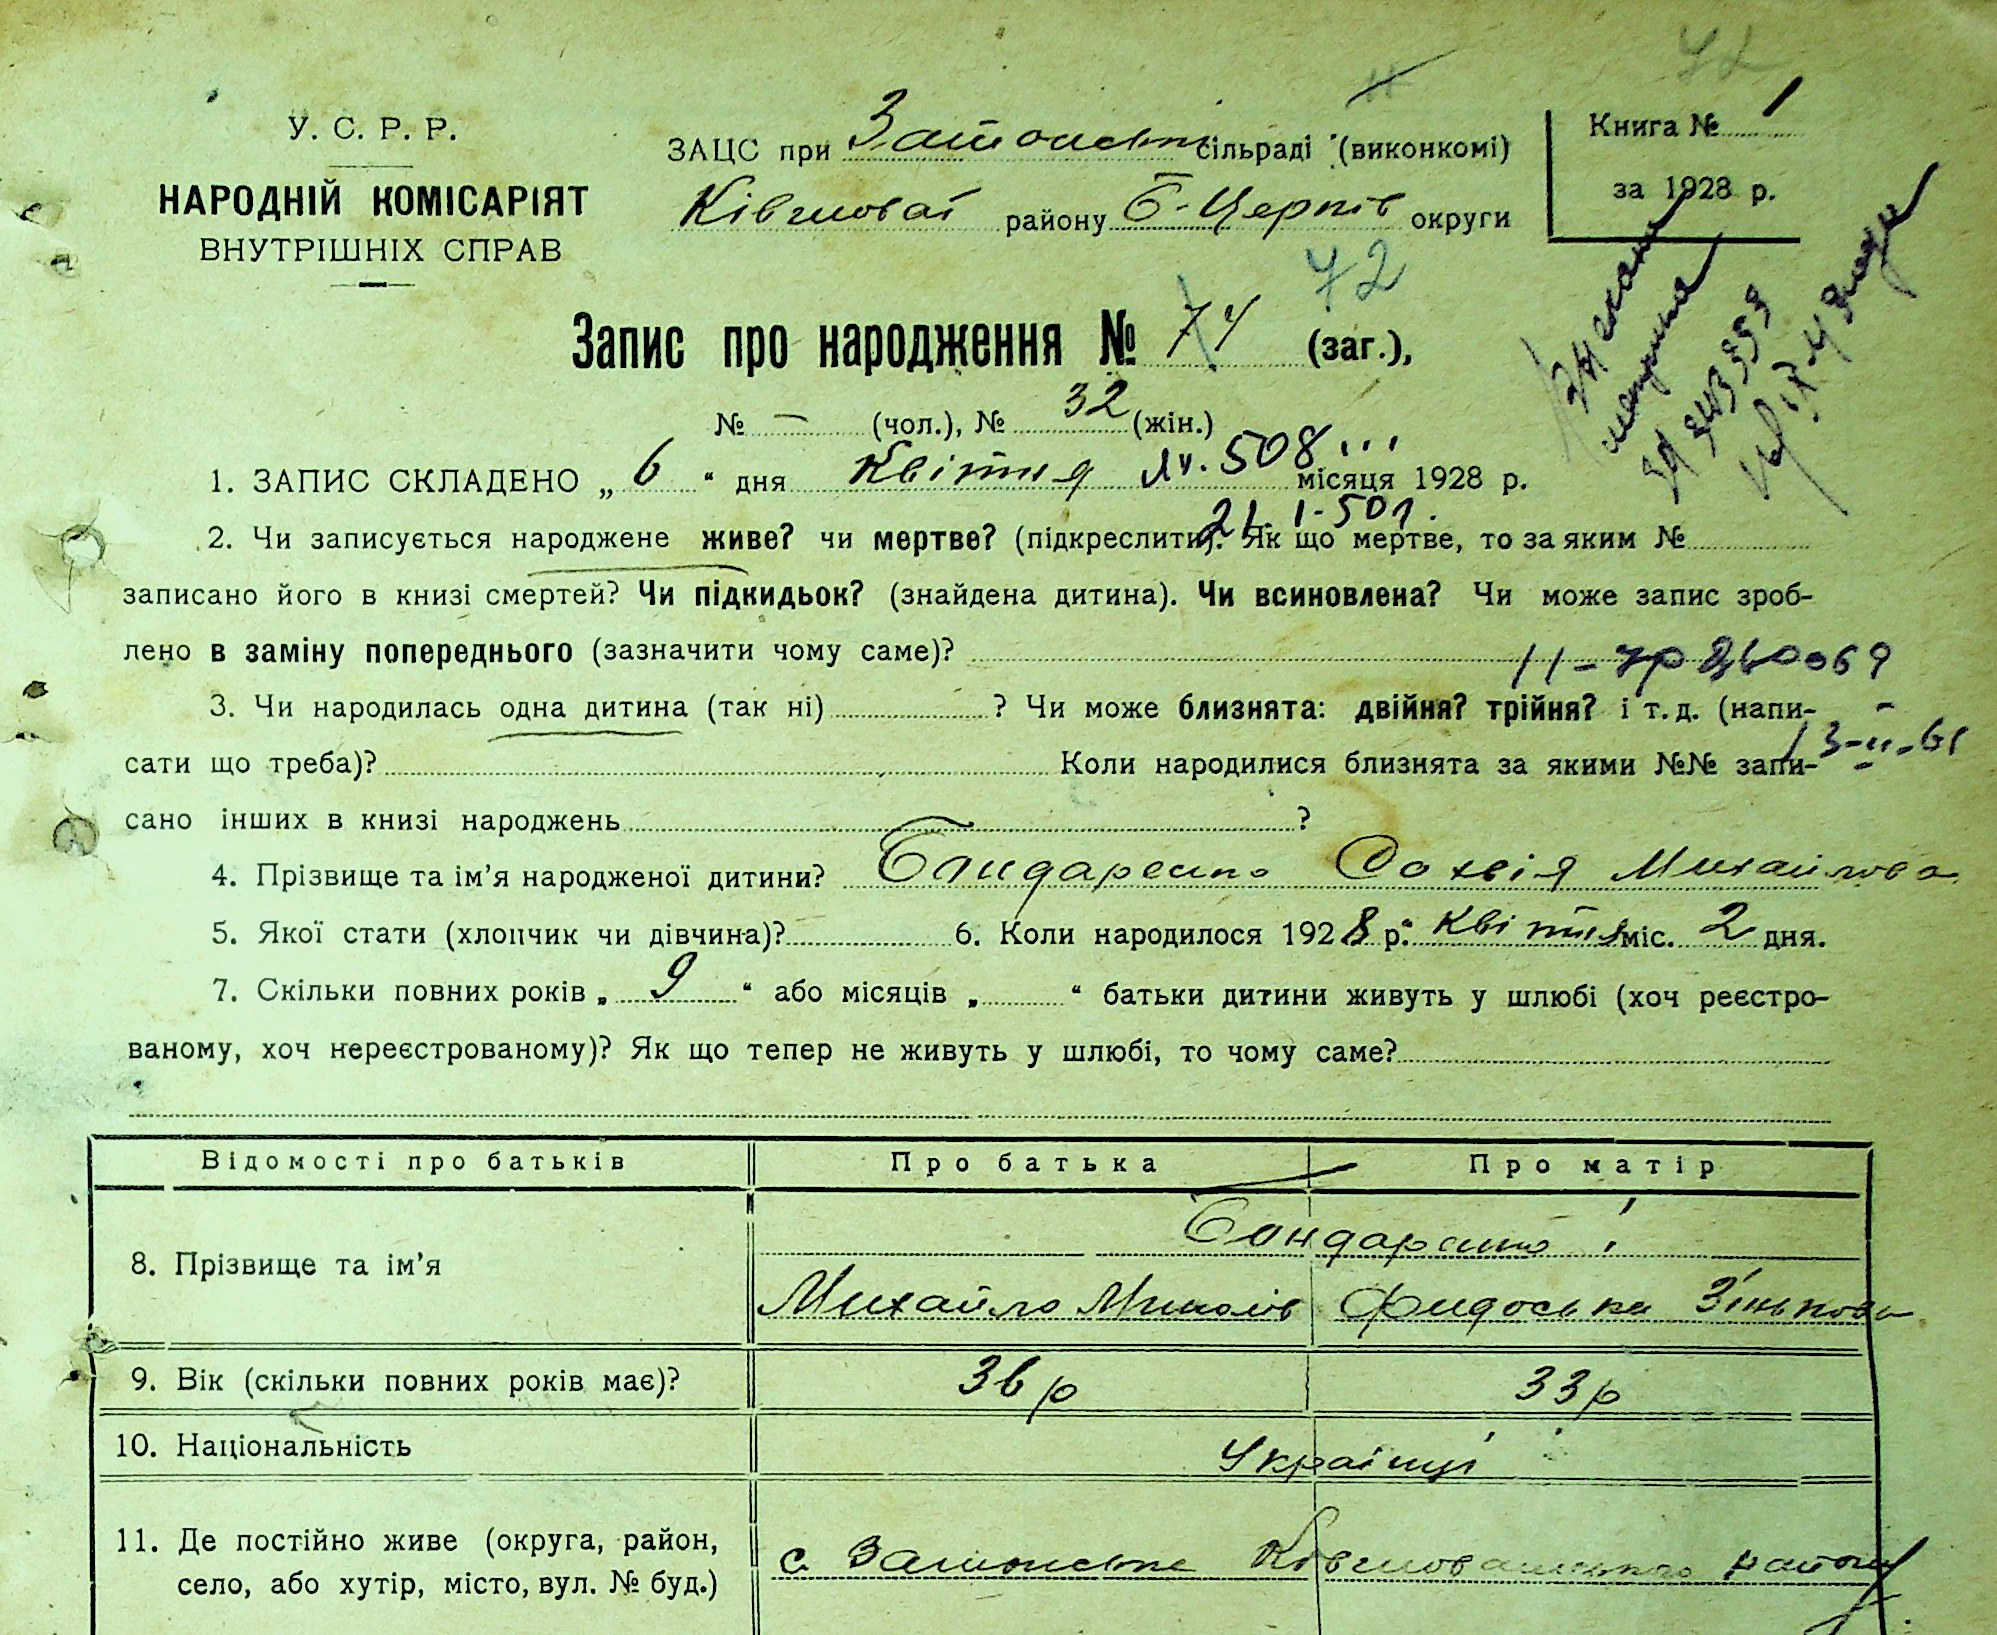 42
У. С. Р. Р.
НАРОДНІЙ КОМІСАРІЯТ
ВНУТРІШНІХ СПРАВ
ЗАЦС при Затонські сільраді (виконкомі)
району Б-Церків округи
Книга № 1
за 1928 р.
72
Запис про народження № 74 (заг.),
№ — (чол.), № 32 (жін.)
1. ЗАПИС СКЛАДЕНО „ 6 “ дня Квітня місяця 1928 р.
508
21-1-501.
2. Чи записується народжене живе? чи мертве? (підкреслити). Як що мертве, то за яким №
записано його в книзі смертей? Чи підкидьок? (знайдена дитина). Чи всиновлена? Чи може запис зроб-
лено в заміну попереднього (зазначити чому саме)?
3. Чи народилась одна дитина (так ні) ? Чи може близнята: двійня? трійня? і т. д. (напи-
13-II-61
сати що треба)? Коли народилися близнята за якими №№ запи-
сано інших в книзі народжень ?
4. Прізвище та ім’я народженої дитини? Бондаренко Софія Михайлова
5. Якої стати (хлопчик чи дівчина)? 6. Коли народилося 1928 р. Квітня міс. 2 дня.
7. Скільки повних років „ 9 “ або місяців „ “ батьки дитини живуть у шлюбі (хоч реєстро-
ваному, хоч нереєстрованому)? Як що тепер не живуть у шлюбі, то чому саме?
Відомості про батьків Про батька Про матір
8. Прізвище та ім’я Бондаренко
Михайло Миколів Фидоська Зінькова
9. Вік (скільки повних років має)? 36 р 33 р
10. Національність Українці
11. Де постійно живе (округа, район,
село, або хутір, місто, вул. № буд.) с. Затонське району